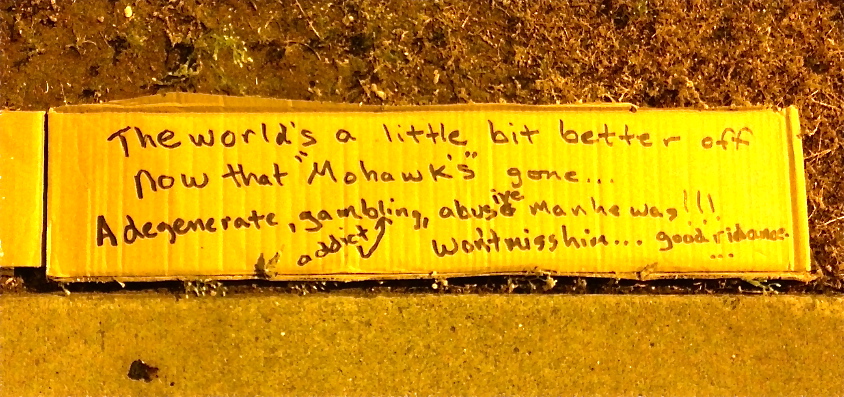 The world's a little bit better off
now that "Mohawk's" gone...
A degenerate, gambling, abusive man he was!!!
addict
Won't miss him... good ridance
...